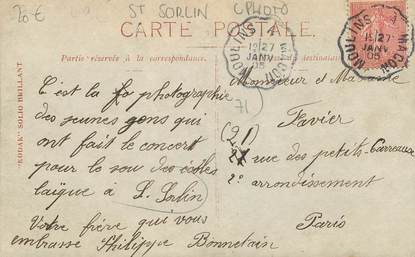 20 €
ST SORLIN
CPHOTO
CARTE POSTALE
Partie réservée à la correspondance.
destinataire
MOULINS A MACON
27
JANV
05
MOULINS A MACON
27
JANV
05
"KODAK" SOLIO BRILLANT
C'est la photographie
des jeunes gens qui
ont fait le concert
pour le sou des écoles
laïque à S. Sorlin
Votre frère qui vous
embrasse Philippe Bonnetain
71
Monsieur et Madame
Favier
(21)
rue des petits-Carreaux
2e arrondissement
Paris